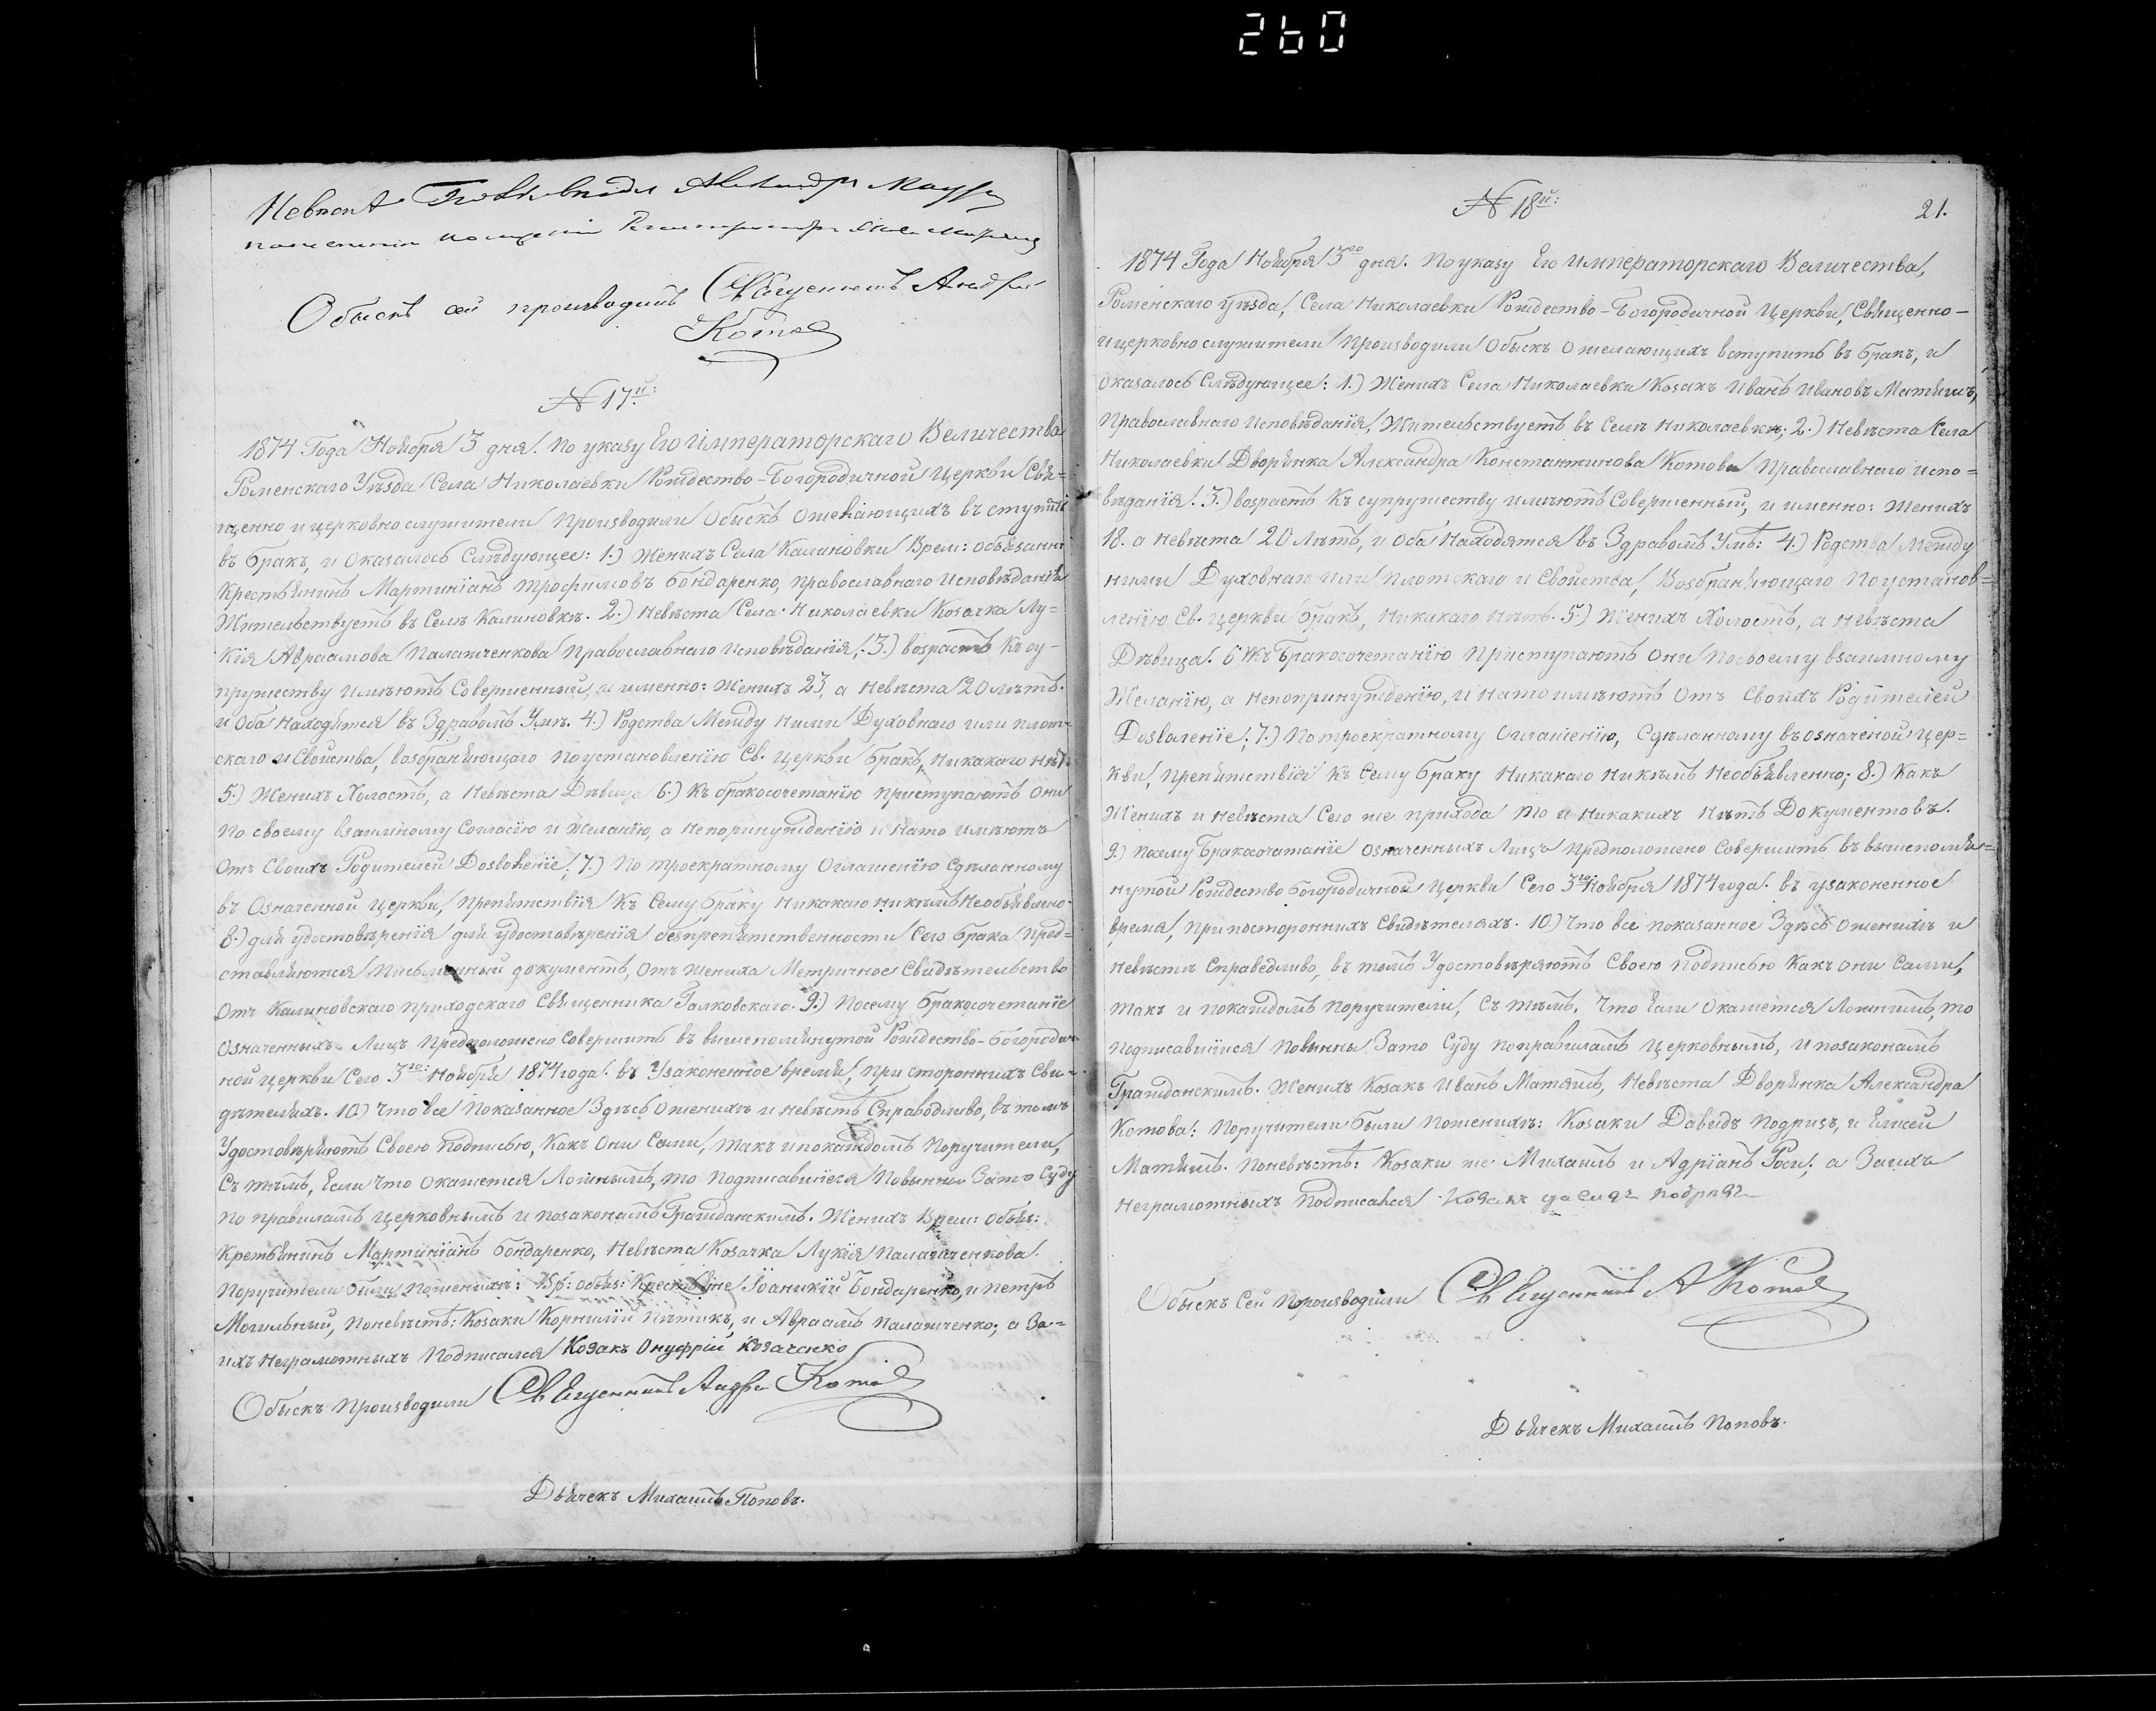 260
Обыскъ сей производилъ Священникъ Андрей
Котов
N 17й:
1874 Года Ноября 3 дня. По указу Его Императорскаго Величества
Роменскаго Уѣзда Села Николаевки Рождество-Богородичной Церкви Свя=
щенно и церковно служители производили Обыскъ о желающихъ вступить
въ бракъ, и оказалось Слѣдующее: 1.) Женихъ Села Калиновки Врем: обязан:
Крестьянинъ Мартиніанъ Трофимовъ Бондаренко, православнаго Исповѣданія
Жительствуетъ въ Селѣ Калиновкѣ. 2.) Невѣста Села Николаевки Козачка Лу=
кія Авраамова Палажченкова Православнаго Исповѣданія; 3.) возрастъ Къ су-
пружеству имѣютъ Совершенный, и именно: Женихъ 23, а Невѣста 20 лѣтъ.
и Оба Находятся въ Здравомъ Умѣ. 4.) Родства Между Ними Духовнаго или плот-
скаго и Свойства, возбраняющаго по установленію Св. Церкви бракъ, Никакого нѣтъ
5.) Женихъ Холостъ, а Невѣста Дѣвица 6.) Къ бракосочетанію приступаютъ Они
По своему взаимному Согласію и желанію, а не поринужденію и на то имѣютъ
Отъ Своихъ Родителей Дозволеніе; 7.) По троекратному Оглашенію Сдѣланному
въ Означенной Церкви, Препятствія Къ Сему браку Никакаго никѣмъ Необъявлено.
8.) для удостовѣренія для удостовѣренія безпрепятственности Сего брака пред=
ставляются Письменный документъ, отъ жениха Метричное Свидѣтельство
Отъ Калиновскаго приходскаго Священника Галковскаго. 9.) Посему бракосочетаніе
Означенныхъ Лицъ Предположено Совершить въ вышепомянутой Рождество-Богородич
ной церкви Сего 3го: Ноября 1874 года. въ Узаконенное время, при сторонних Сви-
дѣтеляхъ. 10.) Что все Показанное Здѣсь о женихѣ и невѣстѣ Справедливо, въ томъ
Удостовѣряютъ Своею Подписью, Какъ Они Сами, такъ и по каждомъ Поручители,
Съ тѣмъ, Если Что окажется Ложнымъ, то Подписавшіеся Повынны За то Суду
По правиламъ церковнымъ и по законамъ Гражданскимъ. Женихъ Врем: Обяз:
Кретьянинъ Мартиніанъ Бондаренко, Невѣста Козачка Лукія Палажченкова.
Поручители были по женихѣ: Вр: обяз: Крестьяне Іоаникій Бондаренко, и Петръ
Могильный, по невѣстѣ: Козаки Корнилій Пятикъ, и Авраамъ Палажченко; а За-
ихъ Неграмотныхъ Подписался Козакъ Онуфрій Козаченко
Обыскъ Производили Священникъ Андрей Котов
Дьячекъ Михаилъ Поповъ.
N 18й:
21.
1874 Года Ноября 3го дня. По указу Его Императорскаго Величества,
Роменскаго Уѣзда, Села Николаевки Рождество-Богородичной Церкви, Священно-
и церковно служители Производили Обыскъ о желающихъ вступить въ бракъ, и
Оказалось Слѣдующее: 1.) Женихъ Села Николаевки Козакъ Иванъ Ивановъ Матяшъ,
Православнаго Исповѣданія, Жительствуетъ въ Селѣ Николаевкѣ; 2.) Невѣста Села
Николаевки Дворянка Александра Константинова Котова Православнаго Испо=
вѣданія. 3.) возрастъ Къ супружеству имѣютъ Совершенный, и именно: Женихъ
18. а Невѣста 20 Лѣтъ, и Оба Находятся въ Здравомъ Умѣ: 4.) Родства Между
ними Духовнаго или плотскаго и Свойства, Возбраняющаго По установ=
ленію Св. церкви бракъ, Никакаго нѣтъ. 5.) Женихъ Холостъ, а Невѣста
Дѣвица. 6 Къ Бракосочетанію Приступаютъ Они По своему взаимному
Желанію, а не по принужденію, и на то имѣютъ Отъ Своихъ Родителей
Дозволеніе; 7.) По троекратному Оглашенію, Сдѣланному въ означеной Цер=
кви, Препятствія Къ Сему браку Никакаго никѣмъ Необъявленно; 8.) Какъ
Женихъ и Невѣста Сего же прихода то и Никакихъ Нѣтъ Документовъ.
9.) Посему Бракосочетаніе означенныхъ Лицъ Предположено Совершить въ вышепомя=
нутой Рождество Богородичной Церкви Сего 3го: Ноября 1874 года. въ узаконенное
время, При посторонних Свидѣтеляхъ. 10.) Что все показанное Здѣсь о женихѣ и
невѣстѣ Справедливо, въ томъ Удостовѣряютъ Своею Подписью Какъ они Сами,
такъ и по каждомъ поручители, Съ тѣмъ, Что Если Окажется Ложнимъ, то
подписавшіися Повынны За то Суду по правиламъ Церковнымъ, и по законамъ
Гражданскимъ. Женихъ Козакъ Иванъ Матяшъ, Невѣста Дворянка Александра
Котова: Поручители были По женихѣ: Козаки Давидъ Подризъ, и Елисей
Матяшъ. По невѣстѣ: Козаки же Михаилъ и Адріанъ Роси; а За ихъ
неграмотныхъ Подписался Козакъ Подризъ
Обыскъ Сей Произзводили Священникъ А Котов
Дьячекъ Михаилъ Поповъ.